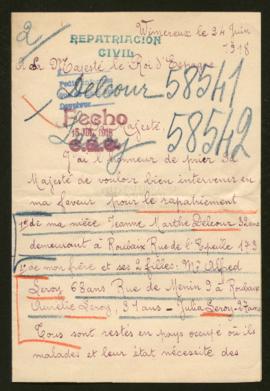 2
Wimereux le 24 Juin
1918
REPATRIACION
CIVIL
A Sa Majesté le Roi d'Espagne
Delcour 58541
Hecho
15 JUL. 1918
Leroy 58542
Majesté,
J'ai l'honneur de prier Sa
Majesté de vouloir bien intervenir en
ma faveur pour le rapatriement
1º de ma nièce Jeanne Marthe Delcour 32 ans
demeurant à Roubaix Rue de l'Epeule 173
de mon frère et ses 2 filles: Mr Alfred
Leroy 68 ans Rue de Menin 9 à Roubaix
Aurélie Leroy, 31 ans - Julia Leroy 27 ans
Tous sont restés en pays occupé où ils
malades et leur état nécessite des